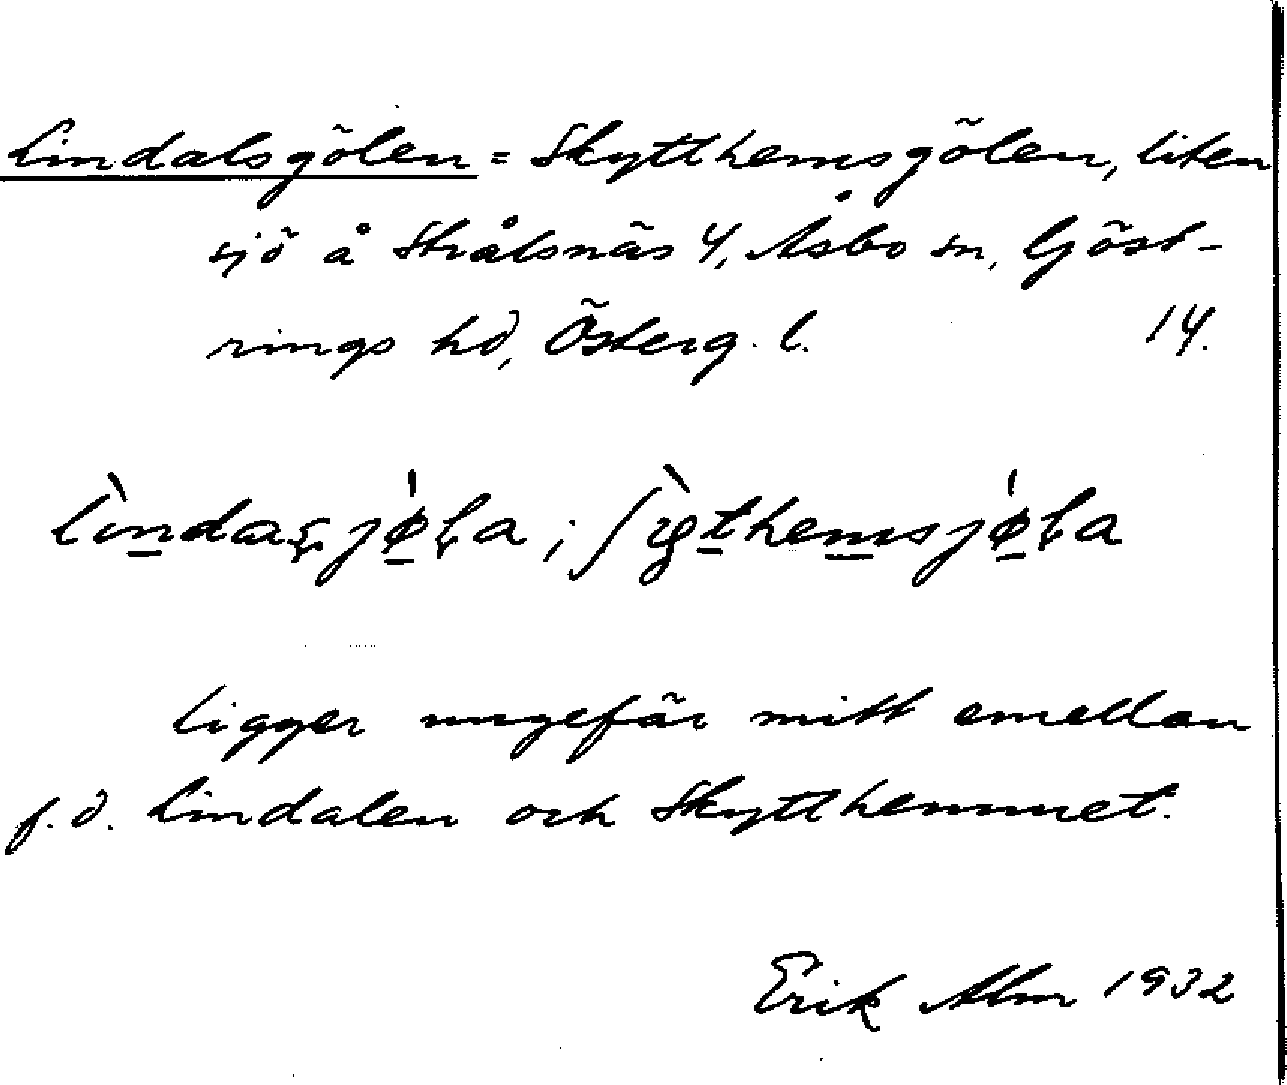 Lindalsgölen = Skytthemsgölen, liten
sjö å Strålsnäs 4, Åsbo sn, Göst-
rings hd, Österg. l. 14.
Ligger ungefär mitt emellan
f.d. Lindalen och Skytthemmet.
Erik Alm 1932